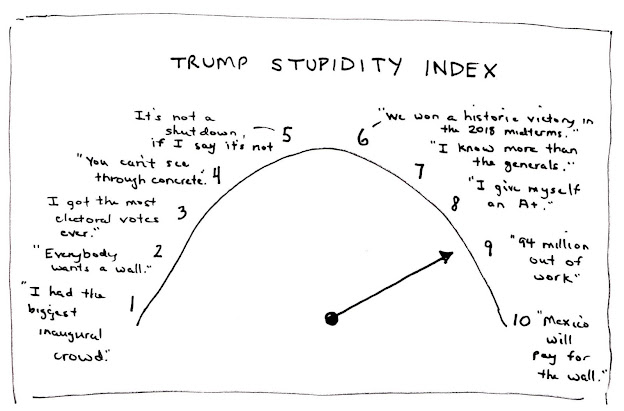 TRUMP STUPIDITY INDEX
It's not a
shutdown,
if I say it's not
5
6
"We won a historic victory in
the 2018 midterms."
"You can't see
through concrete."
4
7
"I know more than
the generals."
I got the most
electoral votes
ever."
3
8
"I give myself
an A+."
"Everybody
wants a wall."
2
9
"94 million
out of
work"
"I had the
biggest
inaugural
crowd."
1
10
"Mexico
will
pay for
the wall."